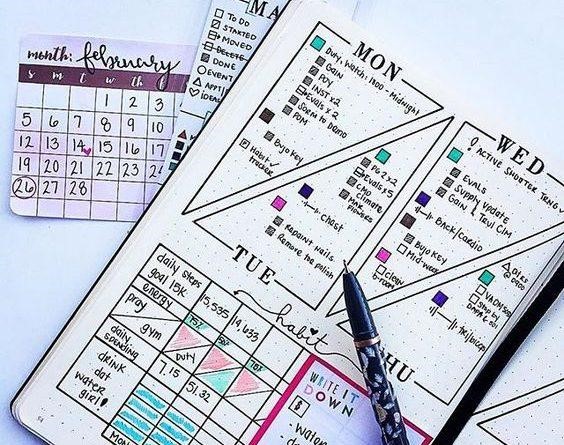 month: february
S M T W TH F S
1 2 3
5 6 7 8 9 10
12 13 14 15 16 17
19 20 21 22 23
26 27 28
MA
TO DO
STARTED
MOVED
DELETE
DONE
EVENT
APPT
IDEA
MON
Duty, Watch: 1200 - Midnight
GAIN
PDY
INST x2
EVALS x2
SORM TO DEMO
PDY
Bujo Key
Habit Tracker
TUE
PG 2 x 2
EVALS x 5
CMD climate
Chest
Repaint nails
Remove the polish
WED
ACTIVE SHOOTER TRNG
EVALS
Supply Update
GAIN & Trvl Clm
Back/cardio
Bujo Key
Mid-week
Clean room
THU
VACATION
habit
daily steps
goal 15K
15,535
14,633
energy
pray
gym
daily spending
Duty
7.15
51.32
drink dat water girl!
MON
WRITE IT DOWN
$
- water